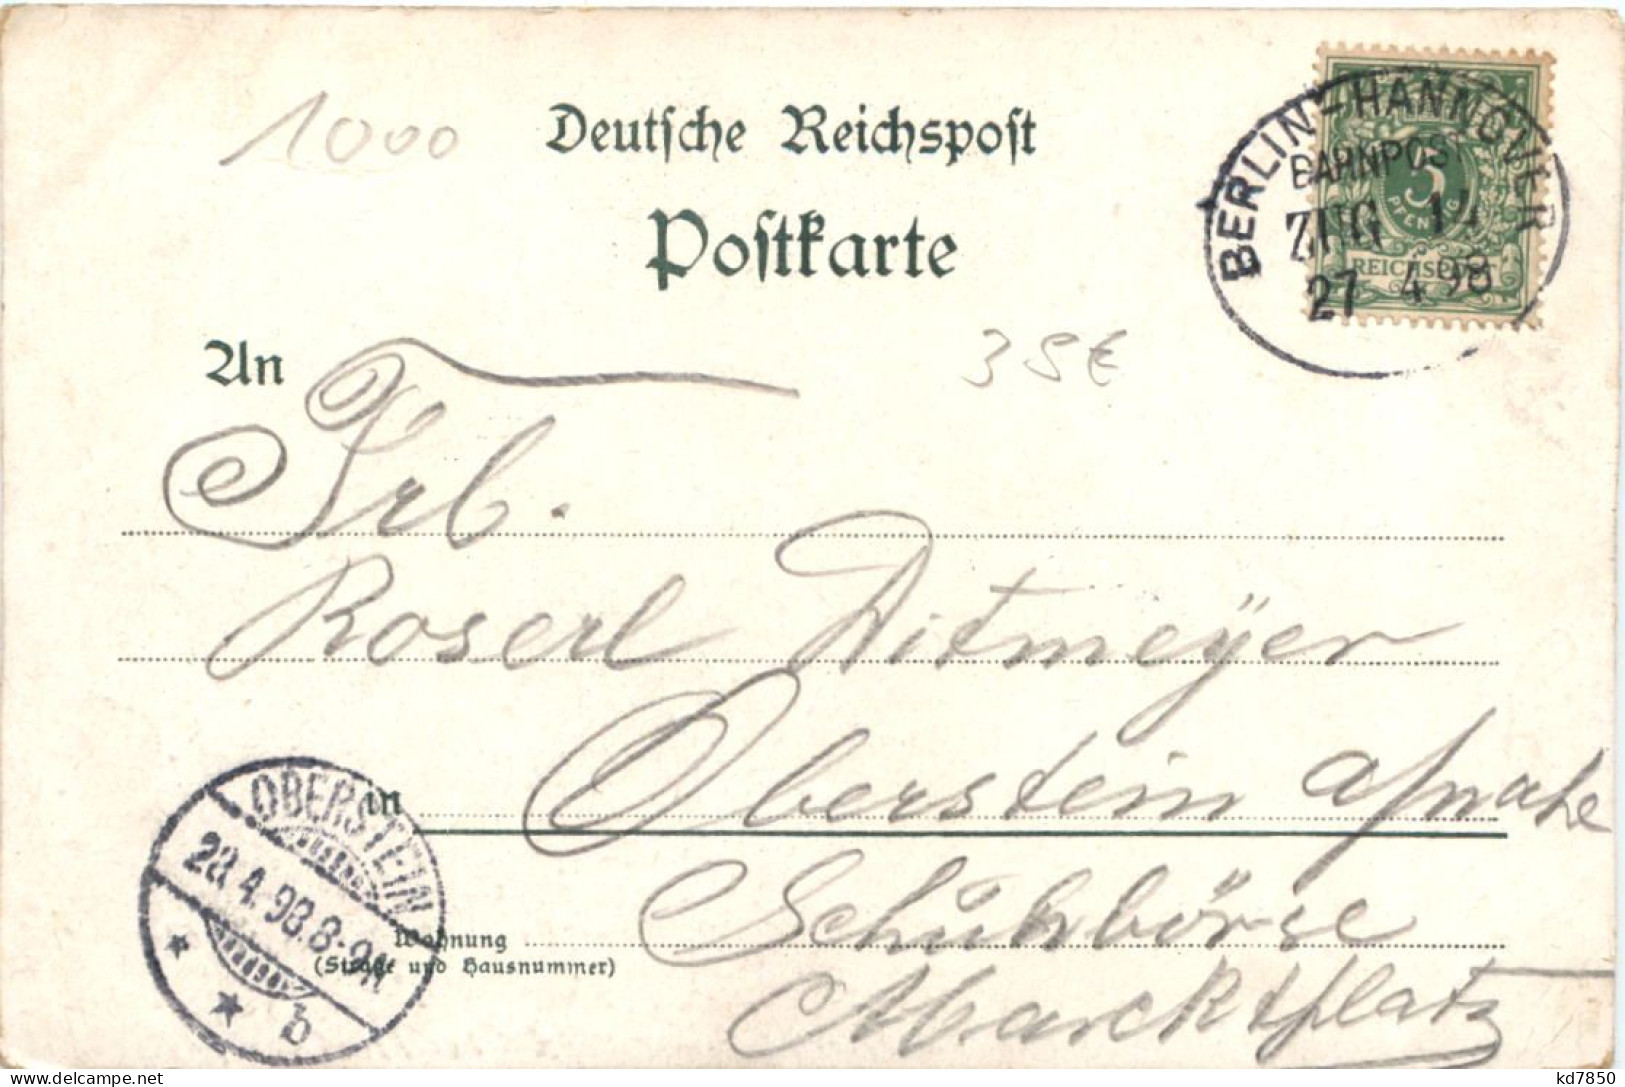 1000
Deutsche Reichspost
Postkarte
BERLIN-HANNOVER
BAHNPOST
ZUG 14
27 4 98
5
PFENNIG
REICHSPOST
An
35€
Frl.
Roserl Ditmeÿer
in Oberstein a/nahe
OBERSTEIN
28.4.98.8-9N
b
Wohnung
(Straße und Hausnummer)
Schuhbörse
Marcktplatz
kd7850